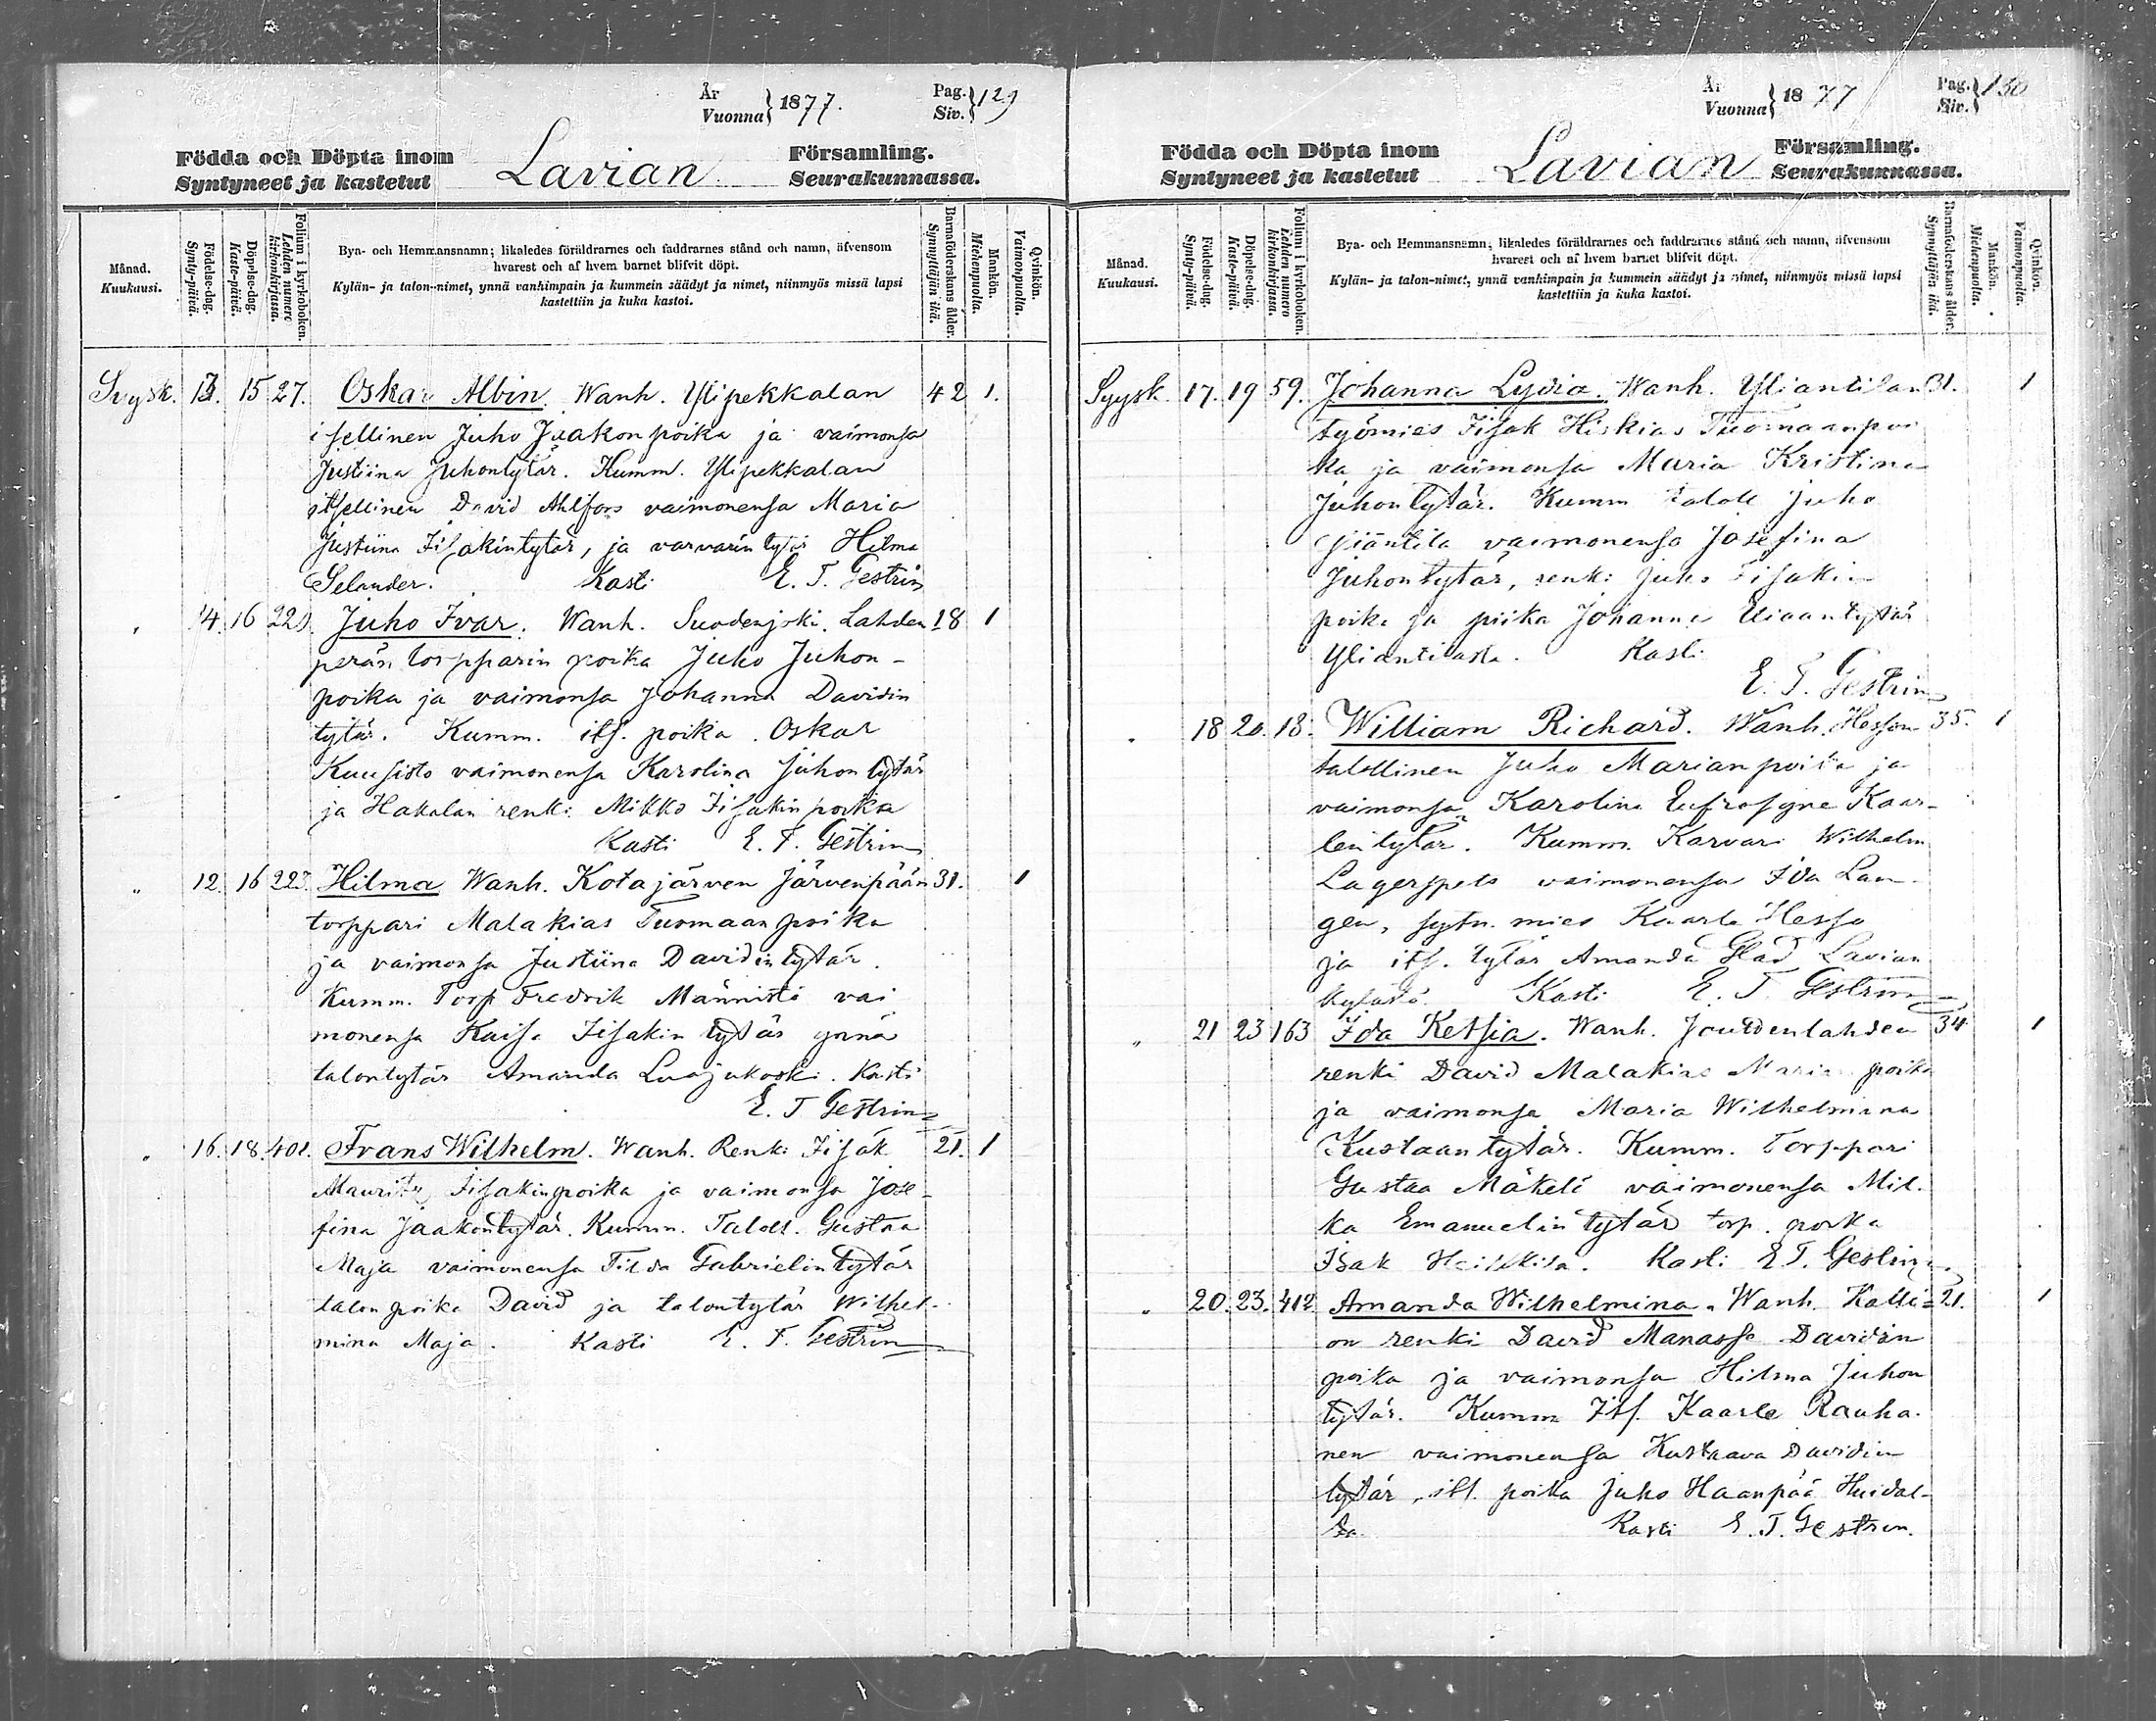 År Vuonna} 1877. Pag. Siv.} 129
Födda och Döpta inom Lavian Församling.
Syntyneet ja kastetut Seurakunnassa.
Månad. Kuukausi.
Födelse-dag. Synty-päivä.
Döpelse-dag. Kaste-päivä.
Folium i kyrkoboken. Lehden numero kirkonkirjassa.
Bya- och Hemmansnamn; likaledes föräldrarnes och faddrarnes stånd och namn, äfvensom
hvarest och af hvem barnet blifvit döpt.
Kylän- ja talon-nimet, ynnä vanhimpain ja kummein säädyt ja nimet, niinmyös missä lapsi
kastettiin ja kuka kastoi.
Barnaföderskans ålder. Synnyttäjän ikä.
Mankön. Miehenpuolta.
Qvinkön. Vaimonpuolta.
Syysk. 13. 15 27. Oskar Albin. Wanh. Ylipekkalan 42 1.
itsellinen Juho Jaakonpoika ja vaimonsa
Justiina Juhontytär. Kumm. Ylipekkalan
itsellinen David Ahlfors vaimonensa Maria
Justiina Iisakintytär, ja varvarin tytär Hilma
Selander. Kasti E. T. Gestrin
" 14. 16 Juho Ivar. Wanh. Suodenjoki. Lahden 18 1
perän torpparin poika Juho Juhon-
poika ja vaimonsa Johanna Davidin
tytär. Kumm. its. poika Oskar
Kuusisto vaimonensa Karolina Juhontytär
ja Hakalan renki Mikko Iisakinpoika
Kasti E. T. Gestrin
" 12. 16 223. Hilma Wanh. Kotajärven Järvenpään 31. 1
torppari Malakias Tuomaanpoika
ja vaimonsa Justiina Davidintytär.
Kumm. Torp Fredrik Männistö vai
monensa Kaisa Iisakintytär ynnä
talontytär Amanda Luojukoski. Kasti
E. T Gestrin
" 16. 18. 401. Frans Wilhelm. Wanh. Renki Iisak 21. 1
Mauritz Iisakinpoika ja vaimonsa Jose-
fina Jaakontytär. Kumm. Taloll. Gustaa
Maja vaimonensa Tilda Gabrielintytär
talonpoika David ja talontytär Wilhel-
mina Maja. Kasti E. T. Gestrin
År Vuonna} 1877 Pag. Siv.} 130
Födda och Döpta inom Lavian Församling.
Syntyneet ja kastetut Seurakunnassa.
Månad. Kuukausi.
Födelse-dag. Synty-päivä.
Döpelse-dag. Kaste-päivä.
Folium i kyrkoboken. Lehden numero kirkonkirjassa.
Bya- och Hemmansnamn; likaledes föräldrarnes och faddrarnes stånd och namn, äfvensom
hvarest och af hvem barnet blifvit döpt.
Kylän- ja talon-nimet, ynnä vanhimpain ja kummein säädyt ja nimet, niinmyös missä lapsi
kastettiin ja kuka kastoi.
Barnaföderskans ålder. Synnyttäjän ikä.
Mankön. Miehenpuolta.
Qvinkön. Vaimonpuolta.
Syysk. 17. 19 59. Johanna Lydia. Wanh. Yliantilan 31. 1
työmies Iisak Hiskias Tuomaanpoi
ka ja vaimonsa Maria Kristina
Juhontytär. Kumm taloll Juho
vaimonensa Josefina
Juhontytär, renki Juho Iisakin
poika ja piika Johanna
Yliantilasta. Kasti
E. T. Gestrin
" 18 20. 18. William Richard. Wanh. Hesson 35. 1
talollinen Juho Marianpoika ja
vaimonsa Karolina Eufrosyne Kaar-
lentytär. Kumm. Karvari Wilhelm
Lagerspets vaimonensa Ida Lan-
gen, mies Kaarle Hesso
ja its. tytär Amanda Glad Lavian
kylästä. Kasti E. T. Gestrin
" 21 23 163 Ida Ketsia. Wanh. Joutdenlahden 34 1
renki David Malakias Marianpoika
ja vaimonsa Maria Wilhelmina
Kustaantytär. Kumm. Torppari
Gustaa Mäkelä vaimonensa Mil-
ka Emanuelintytär torp. poika
Isak Heikkilä. Kasti E. T. Gestrin
" 20. 23. 412 Amanda Wilhelmina. Wanh. Kalli- 21. 1
on renki David Manasse Davidin
poika ja vaimonsa Hilma Juhon
tytär. Kumm Its. Kaarle Rauha-
nen vaimonensa Kustaava Davidin
tytär, its. poika Juho Haanpää
Kasti E. T. Gestrin.